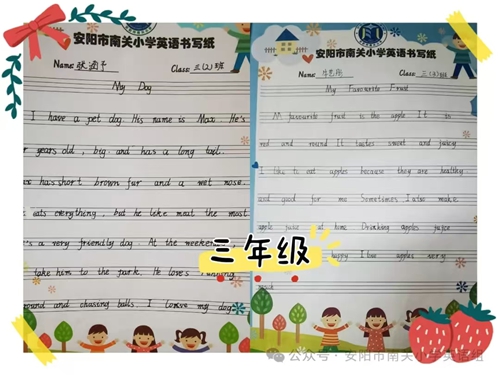 安阳市南关小学英语书写纸
Name: 涵予
Class: 三(2)班
My Dog
I have a pet dog His name is Max He's
years old, big and has a long tail.
has short brown fur and a wet nose.
eats everything, but he like meat the most
a very friendly dog. At the weekend
take him to the park. He loves running
and chasing balls I love my dog.
安阳市南关小学英语书写纸
Name:
Class: 三班
My Favourite Fruit
My favourite fruit is the apple It is
red and round It tastes sweet and juicy
I like to eat apples because they are healthy
and good for me Sometimes I also make
apple juice at home Drinking apples juice
happy I love apples very
三年级
公众号·安阳市南关小学英语组